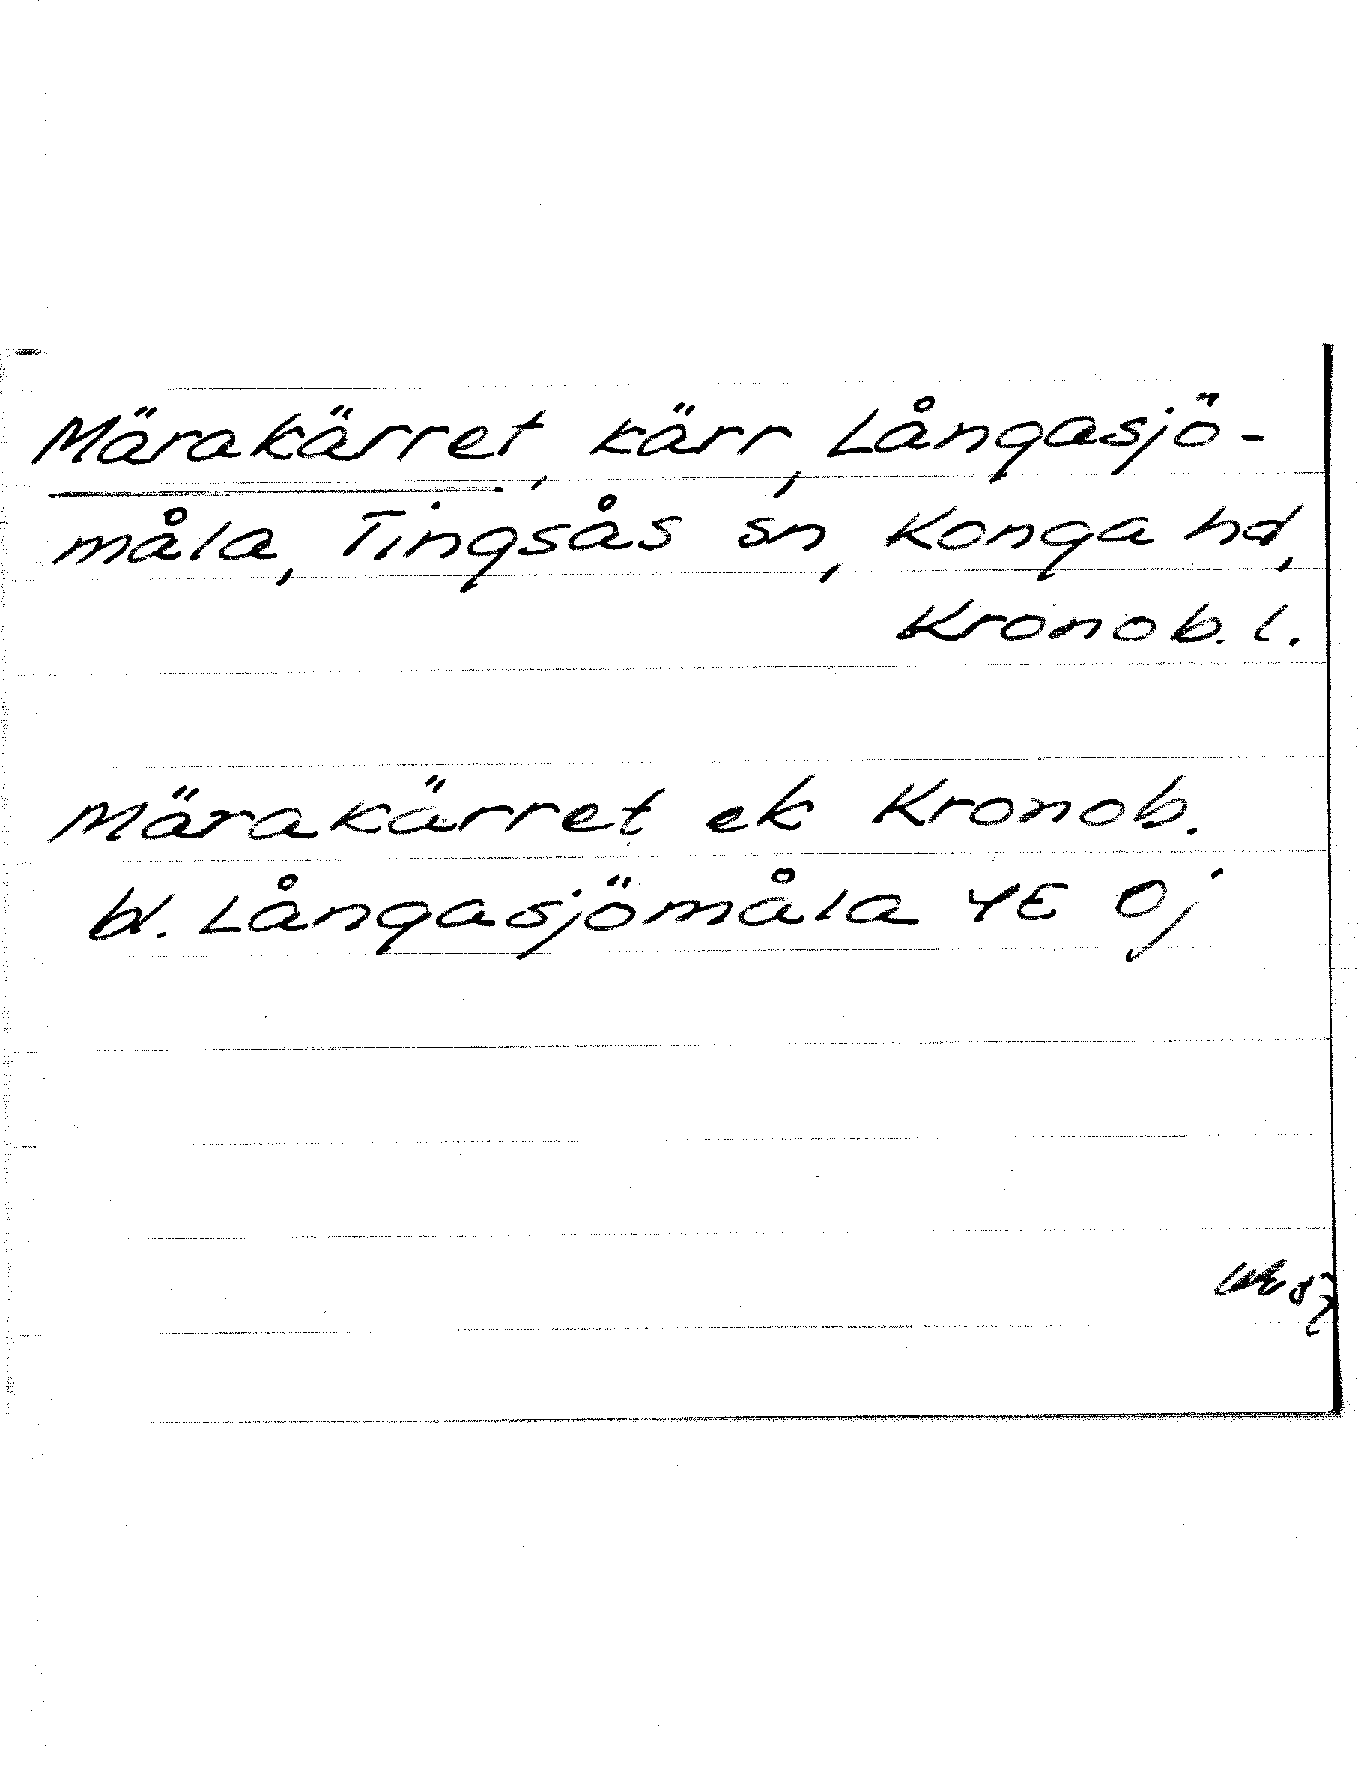 Märakärret, kärr, Långasjö-
måla, Tingsås sn, Konga hd,
Kronob. l.
Märakärret ek Kronob.
bl. Långasjömåla 4E Oj